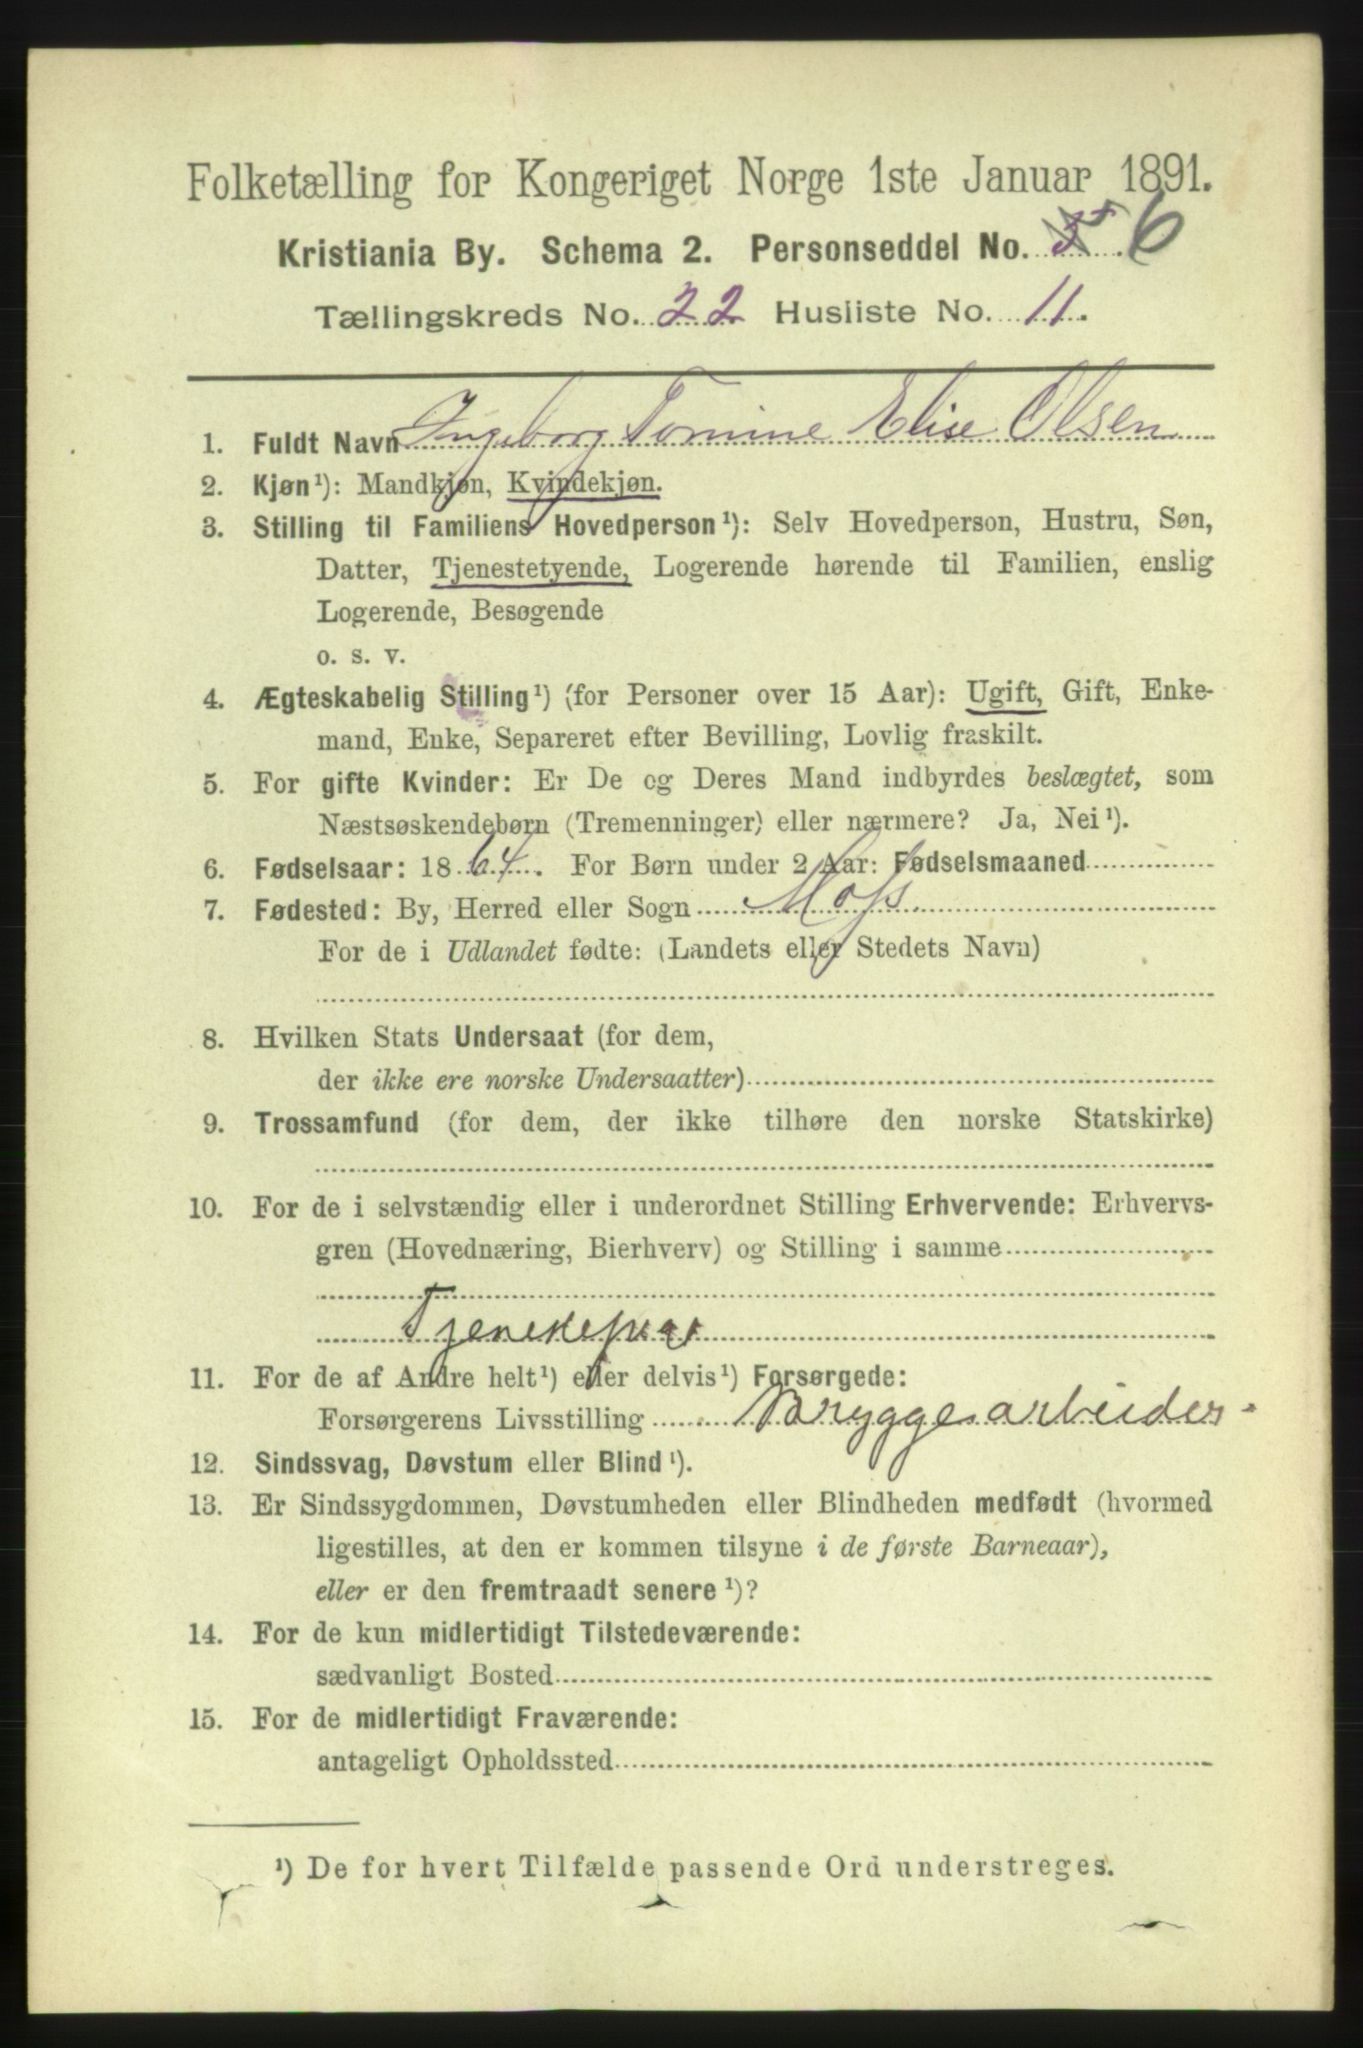 Folketælling for Kongeriget Norge 1ste Januar 1891.
Kristiania By. Schema 2. Personseddel No. 6
Tællingskreds No. 22 Husliste No. 11.
1. Fuldt Navn Ingeborg Tomine Elise Olsen
2. Kjøn¹): Mandkjøn, Kvindekjøn.
3. Stilling til Familiens Hovedperson¹): Selv Hovedperson, Hustru, Søn,
Datter, Tjenestetyende, Logerende hørende til Familien, enslig
Logerende, Besøgende
o. s. v.
4. Ægteskabelig Stilling¹) (for Personer over 15 Aar): Ugift, Gift, Enke-
mand, Enke, Separeret efter Bevilling, Lovlig fraskilt.
5. For gifte Kvinder: Er De og Deres Mand indbyrdes beslægtet, som
Næstsøskendebørn (Tremenninger) eller nærmere? Ja, Nei¹).
6. Fødselsaar: 1864. For Børn under 2 Aar: Fødselsmaaned
7. Fødested: By, Herred eller Sogn Moss
For de i Udlandet fødte: (Landets eller Stedets Navn)
8. Hvilken Stats Undersaat (for dem,
der ikke ere norske Undersaatter)
9. Trossamfund (for dem, der ikke tilhøre den norske Statskirke)
10. For de i selvstændig eller i underordnet Stilling Erhvervende: Erhvervs-
gren (Hovednæring, Bierhverv) og Stilling i samme
Tjenestepige
11. For de af Andre helt¹) eller delvis¹) Forsørgede:
Forsørgerens Livsstilling Bryggesarbeider
12. Sindssvag, Døvstum eller Blind¹).
13. Er Sindssygdommen, Døvstumheden eller Blindheden medfødt (hvormed
ligestilles, at den er kommen tilsyne i de første Barneaar),
eller er den fremtraadt senere¹)?
14. For de kun midlertidigt Tilstedeværende:
sædvanligt Bosted
15. For de midlertidigt Fraværende:
antageligt Opholdssted
¹) De for hvert Tilfælde passende Ord understreges.